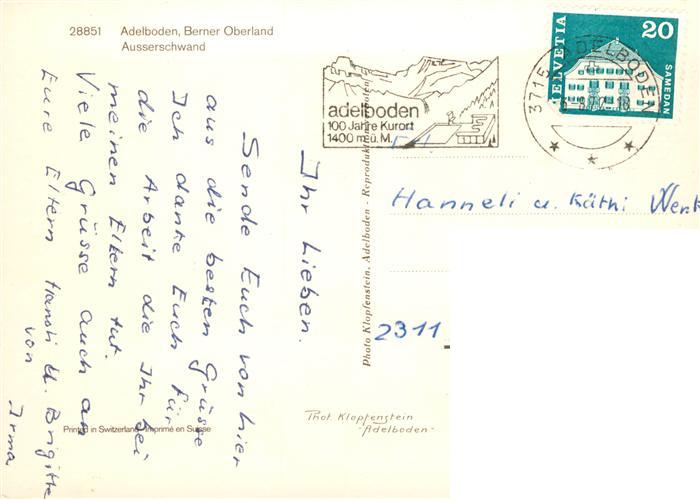 28851 Adelboden, Berner Oberland
Ausserschwand
adelboden
100 Jahre Kurort
1400 m.ü.M.
HELVETIA
20
SAMEDAN
3715 ADELBODEN
Ihr Lieben.
Sende Euch von hier
aus die besten Grüsse
Ich danke Euch für
die Arbeit die Ihr bei
meinen Eltern tut.
Viele Grüsse auch an
Eure Eltern Hansli u. Brigitte
von
Irma
Hanneli u. Käthi Wenk
2311
Photo Klopfenstein, Adelboden - Reproduktion verboten
Phot. Klopfenstein
- Adelboden -
Printed in Switzerland - Imprimé en Suisse